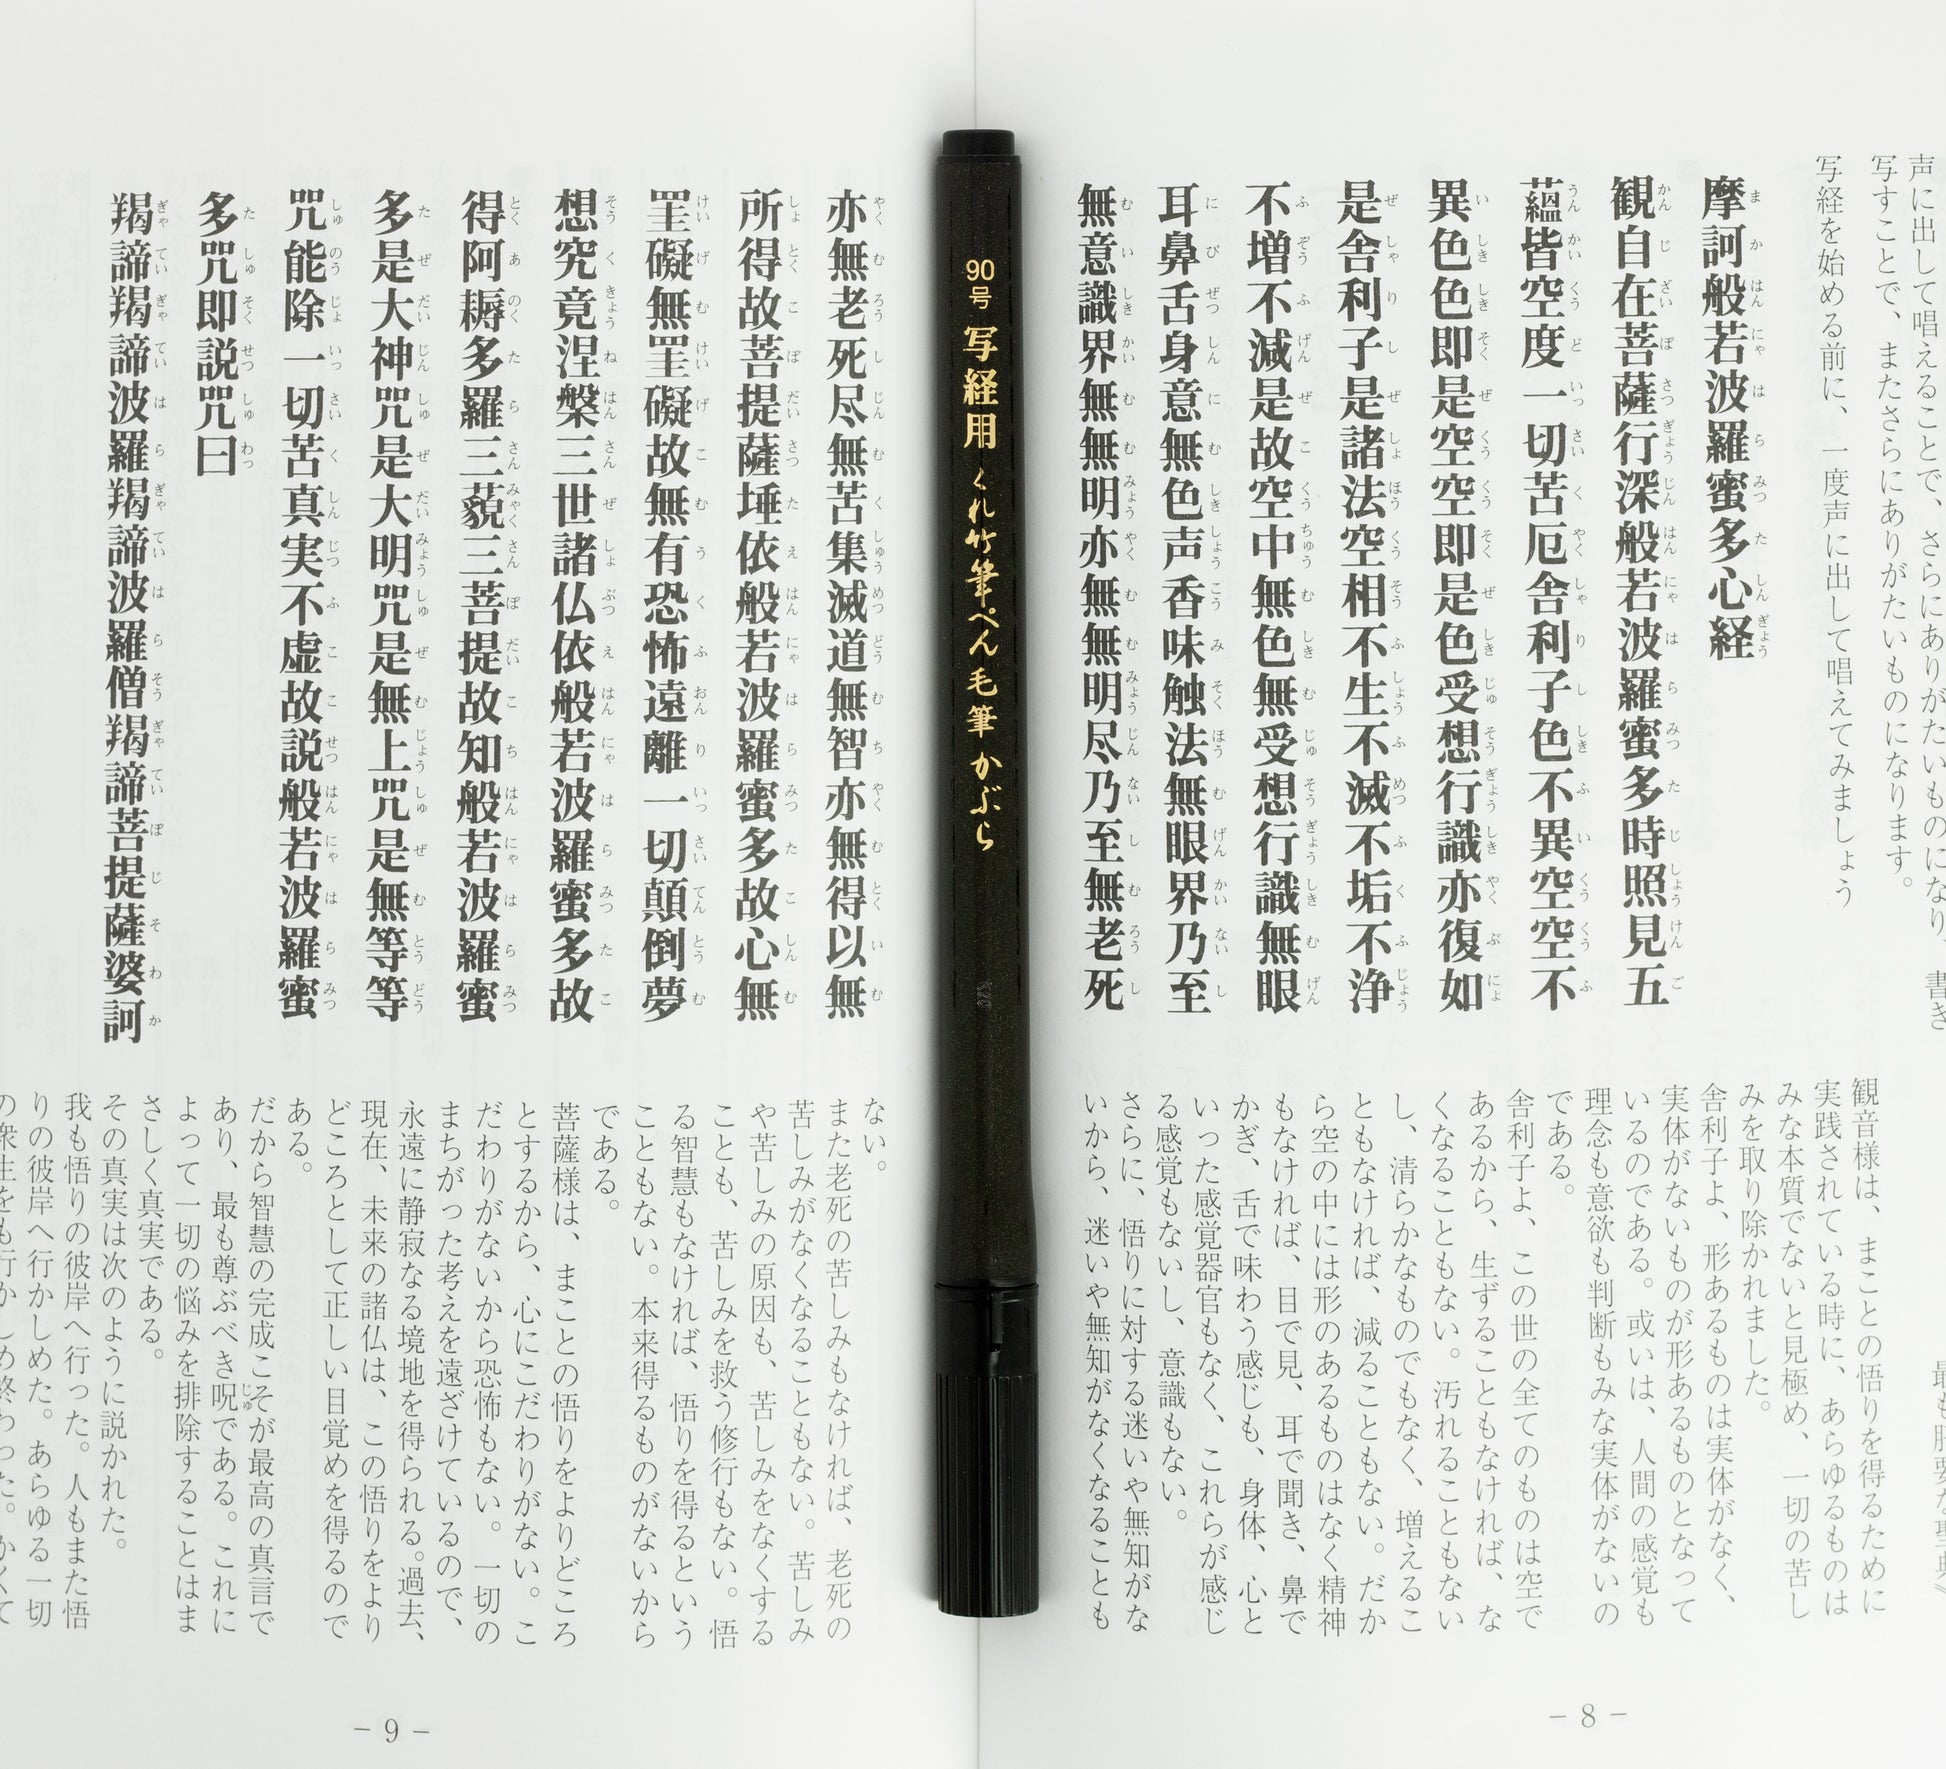 声に出して唱えることで、さらにありがたいものになり、書き
写すことで、またさらにありがたいものになります。
写経を始める前に、一度声に出して唱えてみましょう
摩訶般若波羅蜜多心経
観自在菩薩行深般若波羅蜜多時照見五
蘊皆空度一切苦厄舎利子色不異空空不
異色色即是空空即是色受想行識亦復如
是舎利子是諸法空相不生不滅不垢不浄
不増不減是故空中無色無受想行識無眼
耳鼻舌身意無色声香味触法無眼界乃至
無意識界無無明亦無無明尽乃至無老死
観音様は、まことの悟りを得るために
実践されている時に、あらゆるものは
みな本質でないと見極め、一切の苦し
みを取り除かれました。
舎利子よ、形あるものは実体がなく、
実体がないものが形あるものとなって
いるのである。或いは、人間の感覚も
理念も意欲も判断もみな実体がないの
である。
舎利子よ、この世の全てのものは空で
あるから、生ずることもなければ、な
くなることもない。汚れることもない
し、清らかなものでもなく、増えるこ
ともなければ、減ることもない。だか
ら空の中には形のあるものはなく精神
もなければ、目で見、耳で聞き、鼻で
かぎ、舌で味わう感じも、身体、心と
いった感覚器官もなく、これらが感じ
る感覚もないし、意識もない。
さらに、悟りに対する迷いや無知がな
いから、迷いや無知がなくなることも
－8－
90号 写経用 くれ竹筆ぺん毛筆 かぶら
亦無老死尽無苦集滅道無智亦無得以無
所得故菩提薩埵依般若波羅蜜多故心無
罣礙無罣礙故無有恐怖遠離一切顛倒夢
想究竟涅槃三世諸仏依般若波羅蜜多故
得阿耨多羅三藐三菩提故知般若波羅蜜
多是大神咒是大明咒是無上咒是無等等
咒能除一切苦真実不虚故説般若波羅蜜
多咒即説咒曰
羯諦羯諦波羅羯諦波羅僧羯諦菩提薩婆訶
ない。
また老死の苦しみもなければ、老死の
苦しみがなくなることもない。苦しみ
や苦しみの原因も、苦しみをなくする
ことも、苦しみを救う修行もない。悟
る智慧もなければ、悟りを得るという
こともない。本来得るものがないから
である。
菩薩様は、まことの悟りをよりどころ
とするから、心にこだわりがない。こ
だわりがないから恐怖もない。一切の
まちがった考えを遠ざけているので、
永遠に静寂なる境地を得られる。過去、
現在、未来の諸仏は、この悟りをより
どころとして正しい目覚めを得るので
ある。
だから智慧の完成こそが最高の真言で
あり、最も尊ぶべき呪である。これに
よって一切の悩みを排除することはま
さしく真実である。
その真実は次のように説かれた。
我も悟りの彼岸へ行った。人もまた悟
りの彼岸へ行かしめた。あらゆる一切
－9－